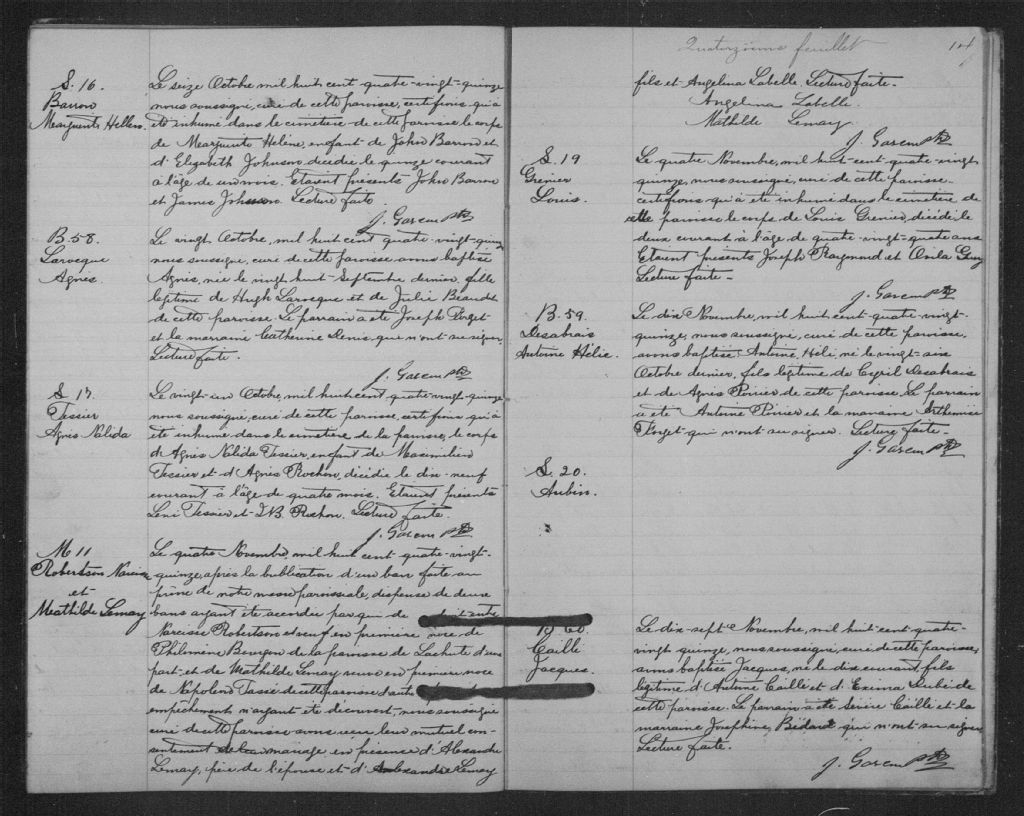 S. 16.
Barron
Marguerite Hellen.
Le seize Octobre mil huit cent quatre-vingt-quinze
nous soussigné, curé de cette paroisse, certifions qu'a
été inhumé dans le cimetière de cette paroisse le corps
de Marguerite Hélène, enfant de John Barron et
d'Elizabeth Johnson décédée le quinze courant
à l'âge de un mois. Etaient présents John Barron
et James Johnson Lecture faite.
J. Garceau Ptre
B. 58.
Larocque
Agnès.
Le vingt Octobre, mil huit cent quatre-vingt-quinze
nous soussigné, curé de cette paroisse avons baptisé
Agnès, née le vingt-huit Septembre dernier, fille
légitime de Hugh Larocque et de Julie Beaudet
de cette paroisse. Le parrain a été Joseph Forget
et la marraine Catherine Denis, qui n'ont su signer
Lecture faite.
J. Garceau Ptre
S 17.
Tessier
Agnès Nalida
Le vingt-un Octobre, mil huit cent quatre-vingt-quinze
nous soussigné, curé de cette paroisse, certifions qu'a
été inhumé dans le cimetière de la paroisse, le corps
d'Agnès Nalida Tessier, enfant de Maximilien
Tessier et d'Agnès Rochon, décédée le dix-neuf
courant à l'âge de quatre mois. Etaient présents
Tessier et J.B. Rochon. Lecture faite.
J. Garceau Ptre
M 11
Robertson Narcisse
et
Mathilde Lemay
Le quatre Novembre, mil huit cent quatre-vingt-
quinze, après la publication d'un ban faite au
prône de notre messe paroissiale, dispense de deux
bans ayant été accordée par qui de
Narcisse Robertson veuf en première noce de
Philmine Bourgeon de la paroisse de Lachute d'une
part et de Mathilde Lemay, veuve en première noce
de Napoléon Tassé de cette paroisse d'autre
empêchement n'ayant été découvert, nous soussigné
curé de cette paroisse avons reçu leur mutuel con-
sentement de mariage en présence d'Alexandre
Lemay, père de l'épouse et d'Alexandre Lemay
Quatorzième feuillet
14
fils et Angelina Labelle. Lecture faite.
Angelina Labelle.
Mathilde Lemay.
J. Garceau Ptre
S. 19
Grenier
Louis.
Le quatre Novembre, mil huit-cent-quatre-vingt
quinze, nous soussigné, curé de cette paroisse
certifions qu'a été inhumé dans le cimetière de
cette paroisse le corps de Louis Grenier, décédé le
deux courant à l'âge de quatre-vingt-quatre ans
Etaient présents Joseph Raymond et Ovila Guay
Lecture faite.
J. Garceau Ptre
B. 59.
Desabrais
Antoine Hélie.
Le dix Novembre, mil huit cent quatre-vingt-
quinze, nous soussigné, curé de cette paroisse,
avons baptisé Antoine, Héli, né le vingt-six
Octobre dernier, fils légitime de Cyril Desabrais
et de Agnès Poirier de cette paroisse. Le parrain
a été Antoine Poirier et la marraine Arthémise
Forget qui n'ont su signer. Lecture faite.
J. Garceau Ptre
S. 20.
Aubin.
B 60.
Caillé
Jacques.
Le dix-sept Novembre, mil huit-cent-quatre-
vingt quinze, nous soussigné, curé de cette paroisse,
avons baptisé Jacques, né le dix courant fils
légitime d'Antoine Caillé et d'Exima Dubé de
cette paroisse. Le parrain a été Sévère Caillé et la
marraine Josephine Bédard qui n'ont su signer
Lecture faite.
J. Garceau Ptre